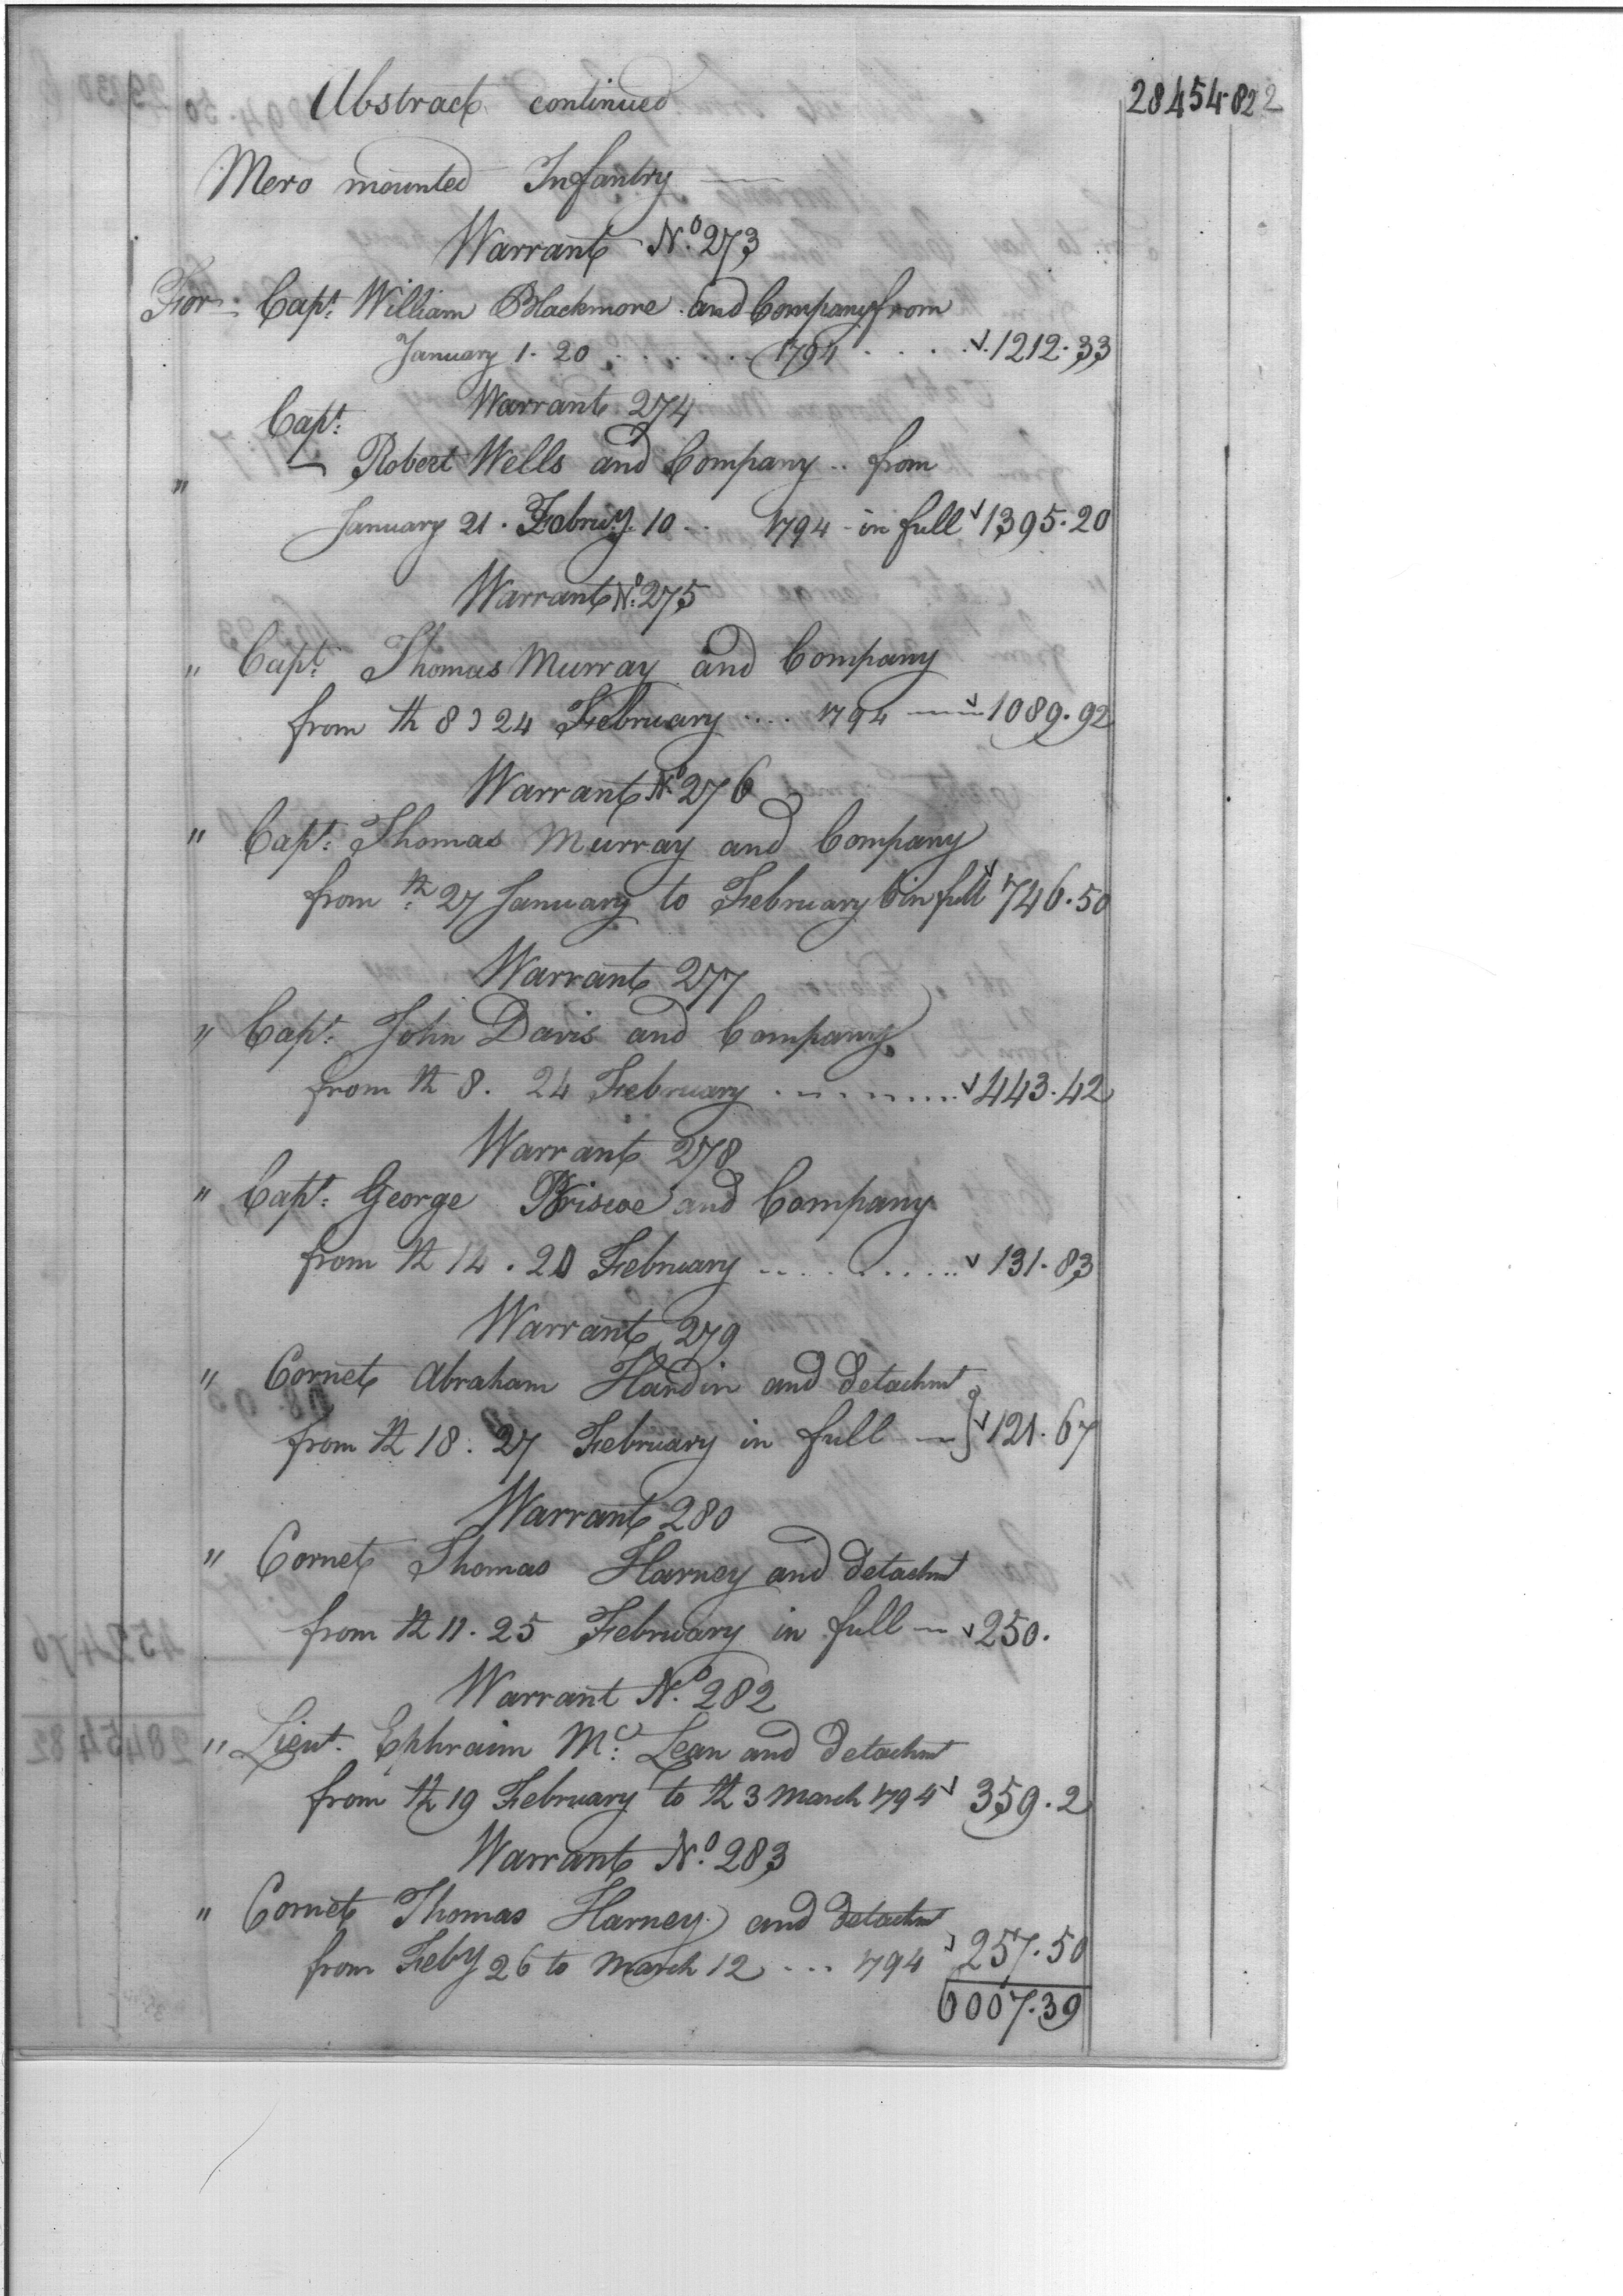 Abstract continued 28454.82 2
Mero mounted Infantry
Warrant No. 273
For Capt. William Blackmore and Company from
January 1. 20 . . . . . . 1794 . . . . 1212.33
Warrant 274
Capt.
" Robert Wells and Company .. from
January 21. Februy. 10 .. 1794 - in full 1395.20
Warrant No. 275
" Capt. Thomas Murray and Company
from th 8 24 February .... 1794 — 1089.92
Warrant No. 276
" Capt. Thomas Murray and Company
from th 27 January to February 6 in full 746.50
Warrant 277
" Capt. John Davis and Company
from th 8. 24 February . . . . . . . 443.42
Warrant 278
" Capt. George Briscoe and Company
from th 14. 20 February . . . . . . . . 131.83
Warrant 279
" Cornet Abraham Hardin and detachmt
from th 18. 27 February in full — } 121.67
Warrant 280
" Cornet Thomas Harney and detachmt
from th 11. 25 February in full — 250.
Warrant No. 282
" Lieut. Ephraim Mc. Lean and detachmt
from th 19 February to th 3 March 1794 359.2
Warrant No. 283
" Cornet Thomas Harney and detachmt
from Feby 26 to March 12 ... 1794 257.50
6007.39